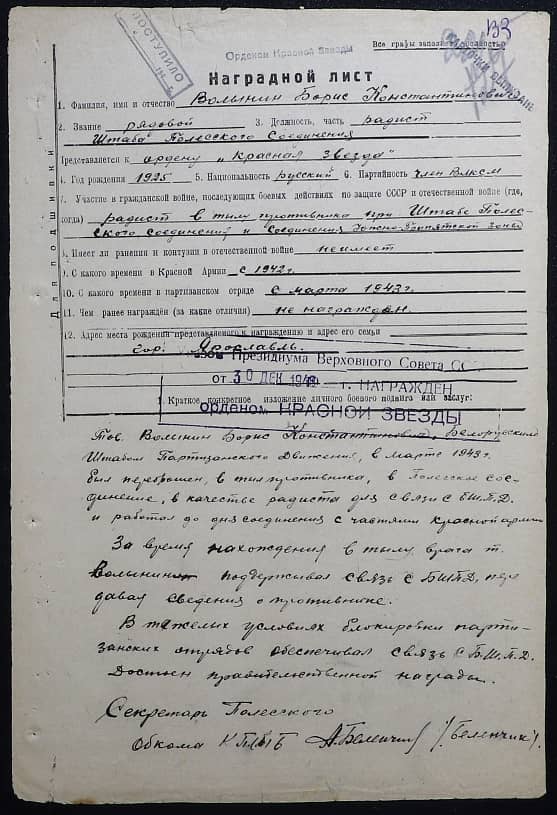 133
ПОСТУПИЛО
Орденом Красной Звезды
Все графы заполнять полностью
Наградной лист
1. Фамилия, имя и отчество Волынин Борис Константинович
2. Звание рядовой 3. Должность, часть радист
Штаба Полесского Соединения
Представляется к ордену "Красная Звезда"
4. Год рождения 1925 5. Национальность русский 6. Партийность член ВЛКСМ
7. Участие в гражданской войне, последующих боевых действиях по защите СССР и отечественной войне (где,
когда) радист в тылу противника при Штабе Полес-
ского соединения и соединения Южно-Припятской зоны
8. Имеет ли ранения и контузии в отечественной войне неимеет
9. С какого времени в Красной Армии с 1942 г.
10. С какого времени в партизанском отряде с марта 1943 г.
11. Чем ранее награждён (за какие отличия) не награжден.
12. Адрес места рождения представляемого к награждению и адрес его семьи
гор. Ярославль.
Президиума Верховного Совета СС
от 30 ДЕК 1948 г. НАГРАЖДЕН
1. Краткое конкретное изложение личного боевого подвига или заслуг:
орденом КРАСНОЙ ЗВЕЗДЫ
Для подшивки
Тов. Волынин Борис Константинович, Белорусским
Штабом Партизанского Движения, в марте 1943 г.
был переброшен, в тыл противника, в Полесское сое-
динение, в качестве радиста для связи с БШПД
и работал до дня соединения с частями красной армии
За время нахождения в тылу врага т.
Волынин поддерживал связь с БШПД, пере
давая сведения о противнике.
В тяжелых условиях блокировки парти-
занских отрядов обеспечивал связь с БШПД.
Достоин правительственной награды.
Секретарь Полесского
Обкома КП(б)Б /Беленчик/.